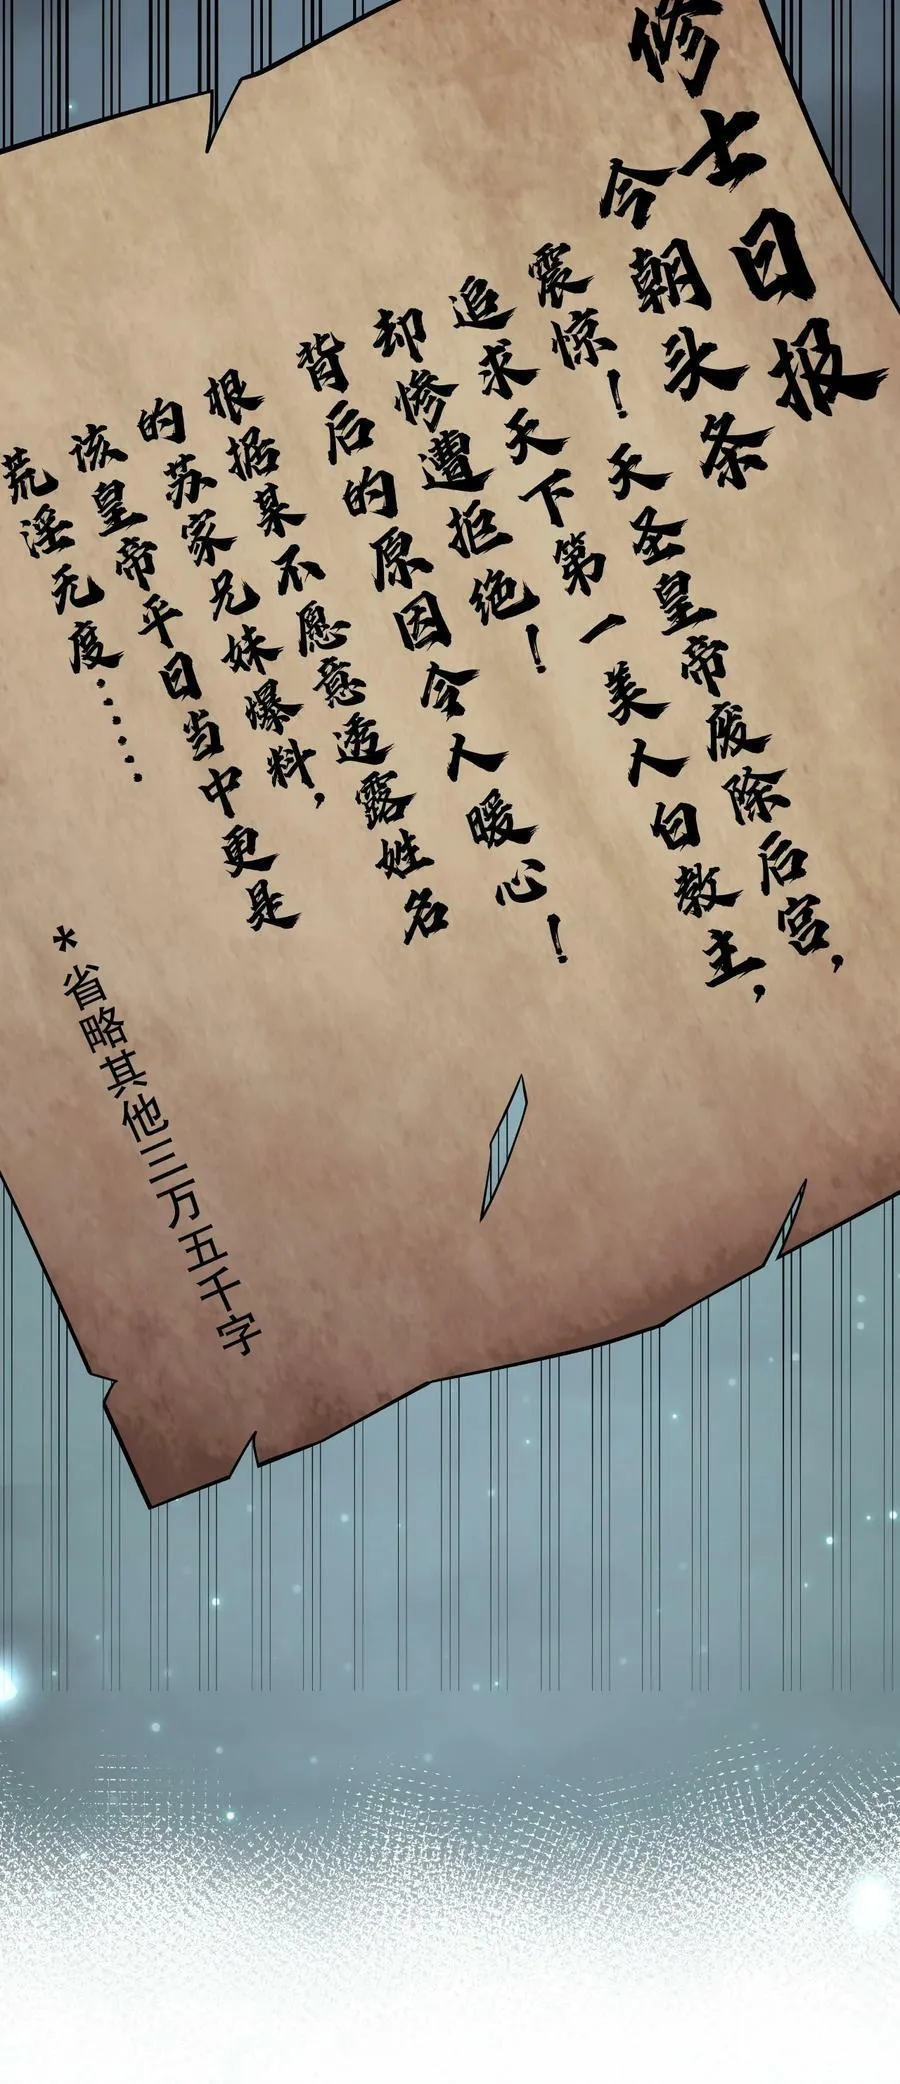 修士日报
今朝头条
震惊！天圣皇帝废除后宫，
追求天下第一美人白教主，
却惨遭拒绝！
背后的原因令人暖心！
根据某不愿意透露姓名
的苏家兄妹爆料，
该皇帝平日当中更是
荒淫无度……
*省略其他三万五千字